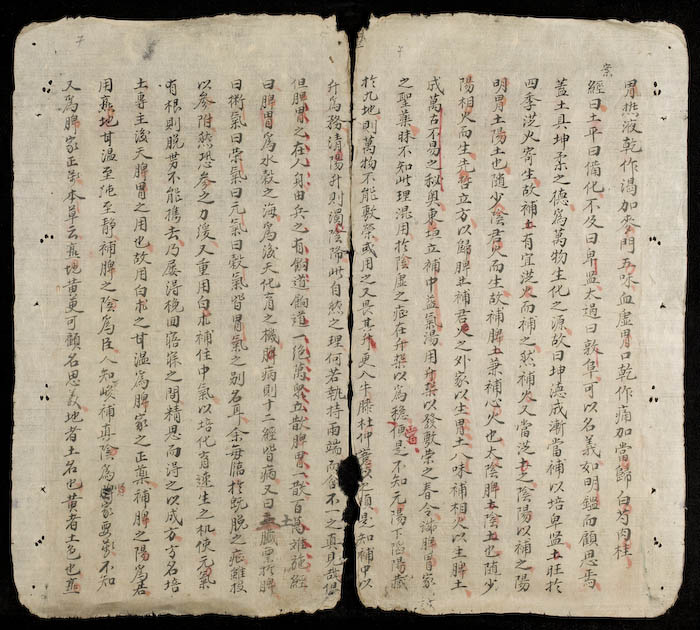 胃燥液乾作渴加麥門五味血虛胃口乾作痛加當歸白芍肉桂
案
經曰土平曰備化不及曰卑監太過曰敦阜可以名義如明鑑而顧思焉
蓋土具坤柔之德為萬物生化之源故曰坤德或漸當補以培卑監土旺於
四季洪火寄生故補土有宜洪火而補之然補火又當洗 之陰陽以補之陽
明胃土陽土也随少陰君火而生故補脾土兼補心火也太陰脾土陰土也随少
陽相火而生先哲立方以歸脾 補君火之外家以生胃土八味補相火以生脾土
成萬古不易之秘奥東垣立補中益氣湯用升柴以發敷榮之春令 脾胃家
之聖藥時不知此理混用於陰虚之症在升柴以為穏當便是不知元陽下陷陽藏
於九地則萬物不能敷榮或用之又畏其升更入牛膝杜仲 之 是知補中以
升為務清陽升則濁陰降此自然之理何若執持兩端而 不一之真見哉
但脾胃之在人身由兵之有餉道餉道一絶萬眾立散脾胃一敗百藥難施經
曰脾胃為水穀之海為後天化育之機脾病則十二經皆病又曰土 臟 於脾
曰衛氣曰榮氣曰元氣曰穀氣皆胃氣之别名耳余每臨於 脱之症 投
以參附然恐參之力緩又重用白朮補住中氣以培化育速生之机使元氣
有根則脱勢不能攜去乃屡得挽回寤寐之間精思而得之以成方方名培
土専主後天脾胃之用也故用白朮之甘温為脾家之正藥補脾之陽為君
用熟地甘温至純至靜補脾之陰為臣人知峻補真陰為腎家要藥不知
又為脾家正藥本草云熟地黄更可顧名思義地者土名也黄者土色也
7
7